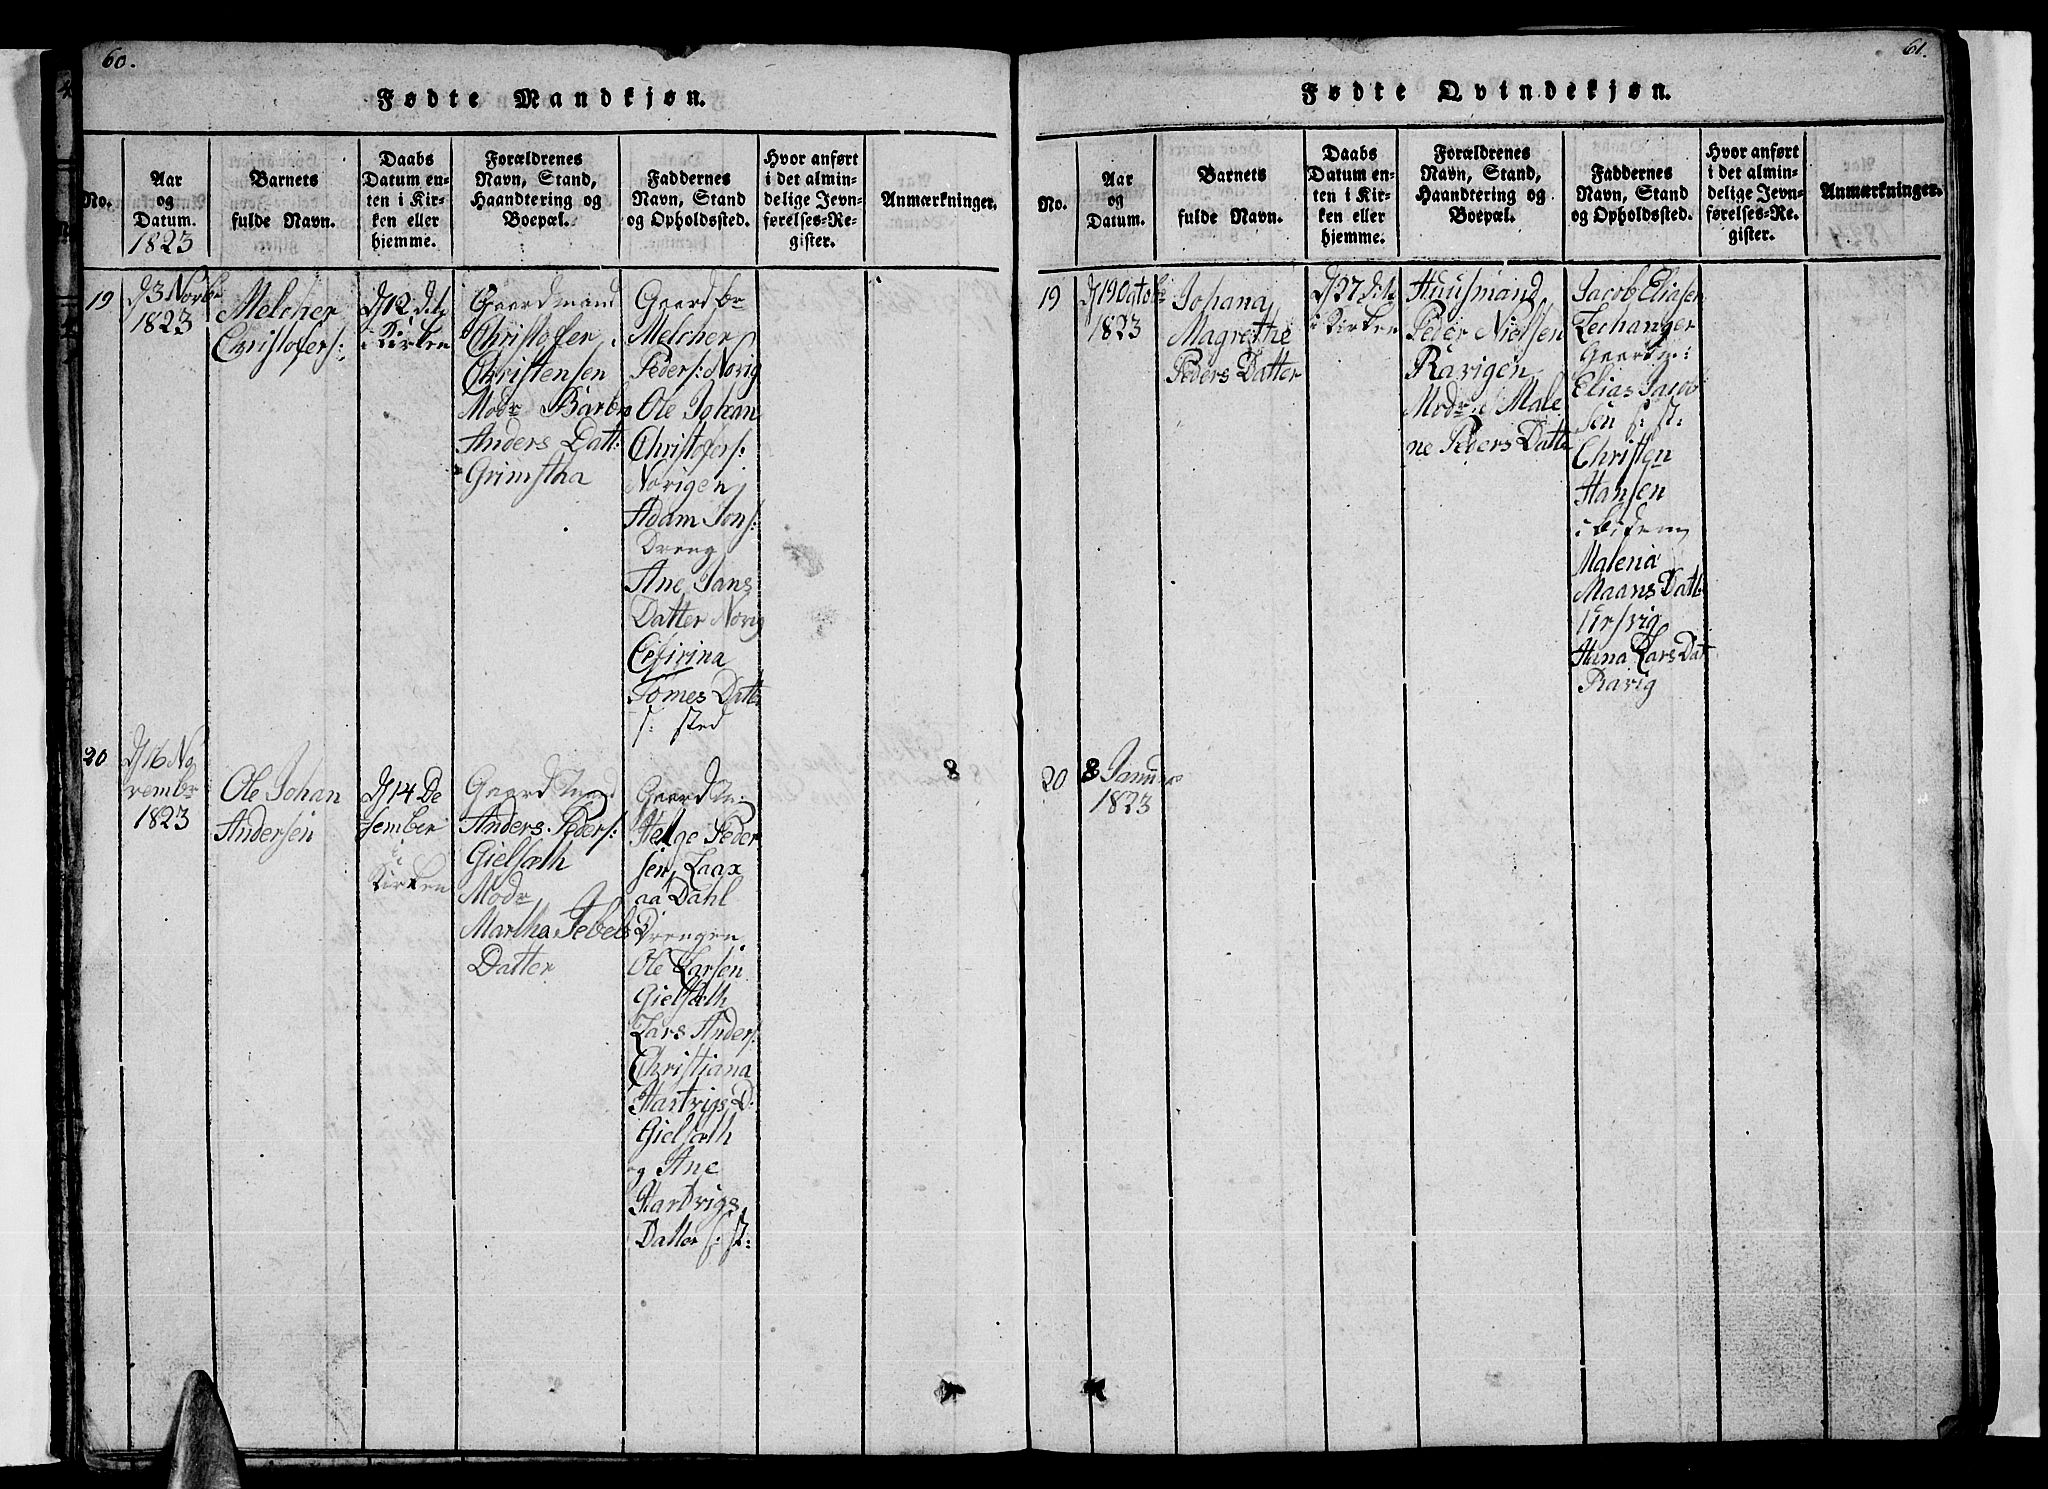 60.
Fødte Mandkjøn.
No.
Aar
og
Datum.
1823
Barnets
fulde Navn.
Daabs
Datum en-
ten i Kir-
ken eller
hjemme.
Forældrenes
Navn, Stand,
Haandtering og
Boepæl.
Faddernes
Navn, Stand
og Opholdssted.
Hvor anført
i det almin-
delige Jevn-
førelses-Re-
gister.
Anmærkninger.
19
d 3 Novbr
1823
Melcher
Christofers:
d 12 dito
i Kirken
Gaardmand
Christofer
Christensen
Modr Barbro
Anders Datt:
Grimstha
Gaardbr
Melcher
Peders: Norig
Ole Johan
Christofers:
Norigen
Adam Jons:
Dreng
Ane Jans
Datter Norig
Cefirina
Tomes Datter
s: sted
20
d 16 No
vembr
1823
Ole Johan
Andersen
d 14 De
sember
i
Kirken
Gaard Mand
Anders Peders:
Gielsæth
Modr
Martha Jebels
Datter
Gaard M:
Helge Peder
sen Laax
aa Dahl
Drengen
Ole Larsen
Gielsæth
Lars Anders:
Christiana
Hartvigs D.
Gielsæth
og Ane
Hartvigs
Datter s: st:
8
61.
Fødte Qvindekjøn.
No.
Aar
og
Datum.
Barnets
fulde Navn.
Daabs
Datum en-
ten i Kir-
ken eller
hjemme.
Forældrenes
Navn, Stand,
Haandtering og
Boepæl.
Faddernes
Navn, Stand
og Opholdssted.
Hvor anført
i det almin-
delige Jevn-
førelses-Re-
gister.
Anmærkninger.
19
d 19 Octobr
1823
Johana
Magrethe
Peders Datter
d 27 dito
i Kirken
Huusmand
Peder Nielsen
Ravigen
Modr Male
ne Peders Datter
Jacob Eliasen
Lechanger
Gaardm:
Elias Jacob
sen s: st:
Christen
Hansen
Malena
Maans Datt
Ursvig
Hana Lars Dat
Ravig
20
8 Januar
1823